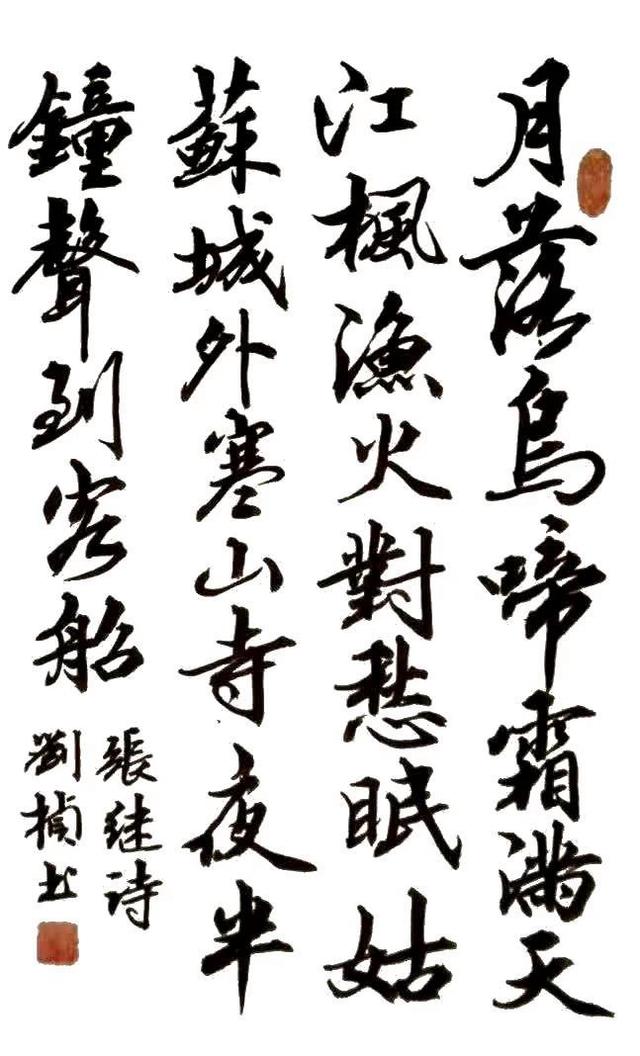 月落烏啼霜滿天
江楓漁火對愁眠姑
蘇城外寒山寺夜半
鐘聲到客船
張继诗
劉楨书